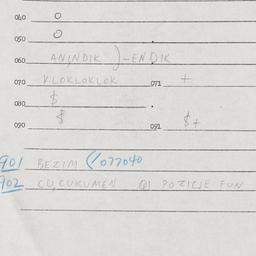 040 0
050 0
060 ANINDIK )-ENDIK
070 KLOKLOKLOK 071 +
080 $
090 $ 091 $+
901 BEZIM (/077040
902 CUCUKUMEN QI POZICJE FUN